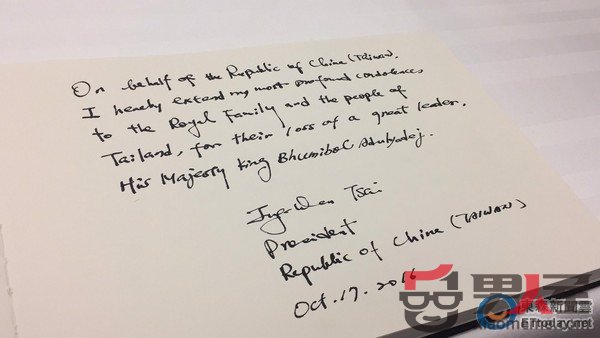 On behalf of the Republic of China (Taiwan),
I hereby extend my most profound condolences
to the Royal Family and the people of
Tailand, for their loss of a great leader,
His Majesty King Bhumibol Adulyadej.
Ing-Wen Tsai
President
Republic of China (TAIWAN)
Oct. 17. 2016
東森新聞雲
ETtoday.net